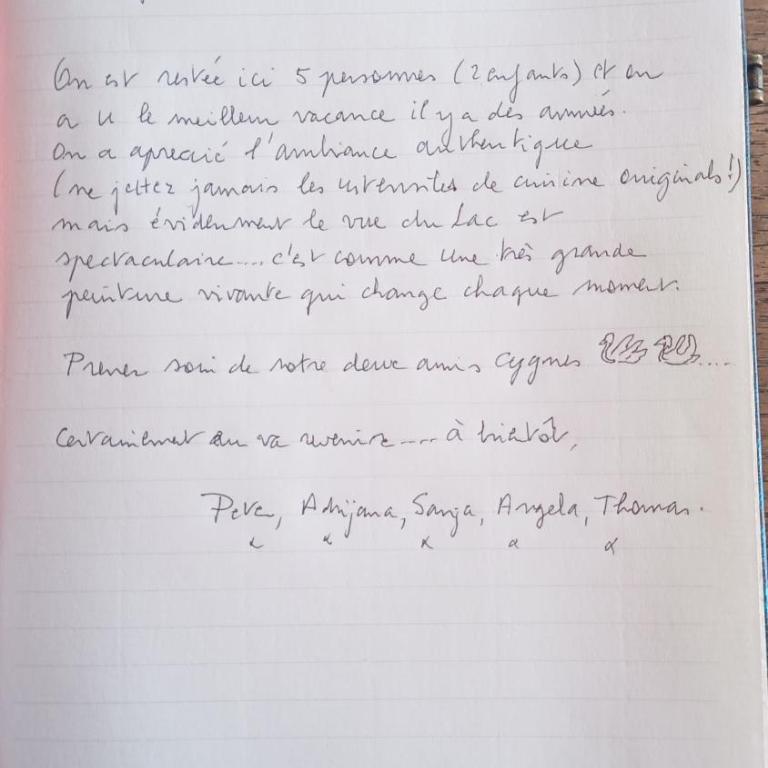 On est restée ici 5 personnes (2 enfants) et on
a u le meilleur vacance il y a dès années.
On a aprecié l'ambiance authentique
(ne jettez jamais les ustensiles de cuisine originals!)
mais évidenment le vue du Lac est
spectaculaire.... c'est comme une très grande
peinture vivante qui change chaque moment.
Prener soin de notre deux amis cygnes ....
Certainement on va revenire.... à bientôt,
Petra, Adrijana, Sanja, Angela, Thomas.
x x x x x